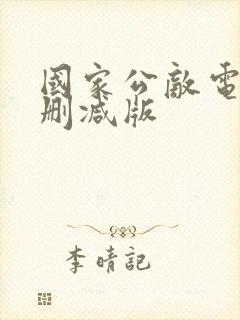 國家公敵電
刪減版
李晴記